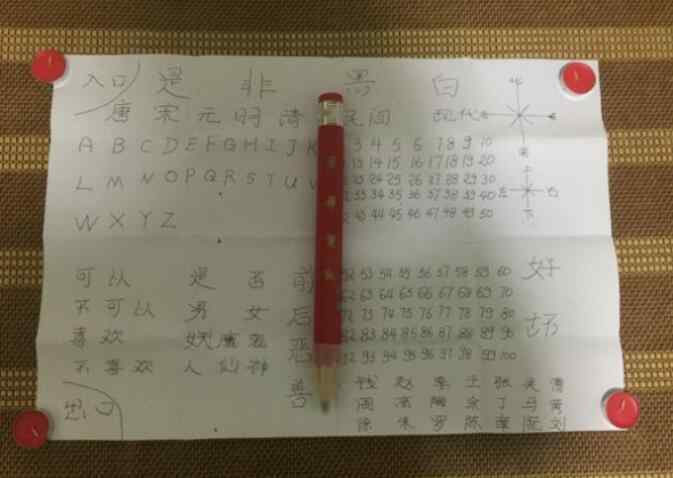 入口 是 非 黑 白
唐 宋 元 明 清 民间 现代
A B C D E F G H I J K 3 4 5 6 7 8 9 10
13 14 15 16 17 18 19 20
L M N O P Q R S T U V 23 24 25 26 27 28 29 30
33 34 35 36 37 38 39 40
W X Y Z 43 44 45 46 47 48 49 50
北
南
上
左 右
下
可以 是 否 前 52 53 54 55 56 57 58 59 60 好
不可以 男 女 后 62 63 64 65 66 67 68 69 70
72 73 74 75 76 77 78 79 80 坏
喜欢 妖魔鬼 恶 82 83 84 85 86 87 88 89 90
不喜欢 人仙神 92 93 94 95 96 97 98 99 100
善 钱 赵 李 王 张 吴
出口 周 陶 余 丁 马 黄
徐 朱 罗 陈 阮 刘